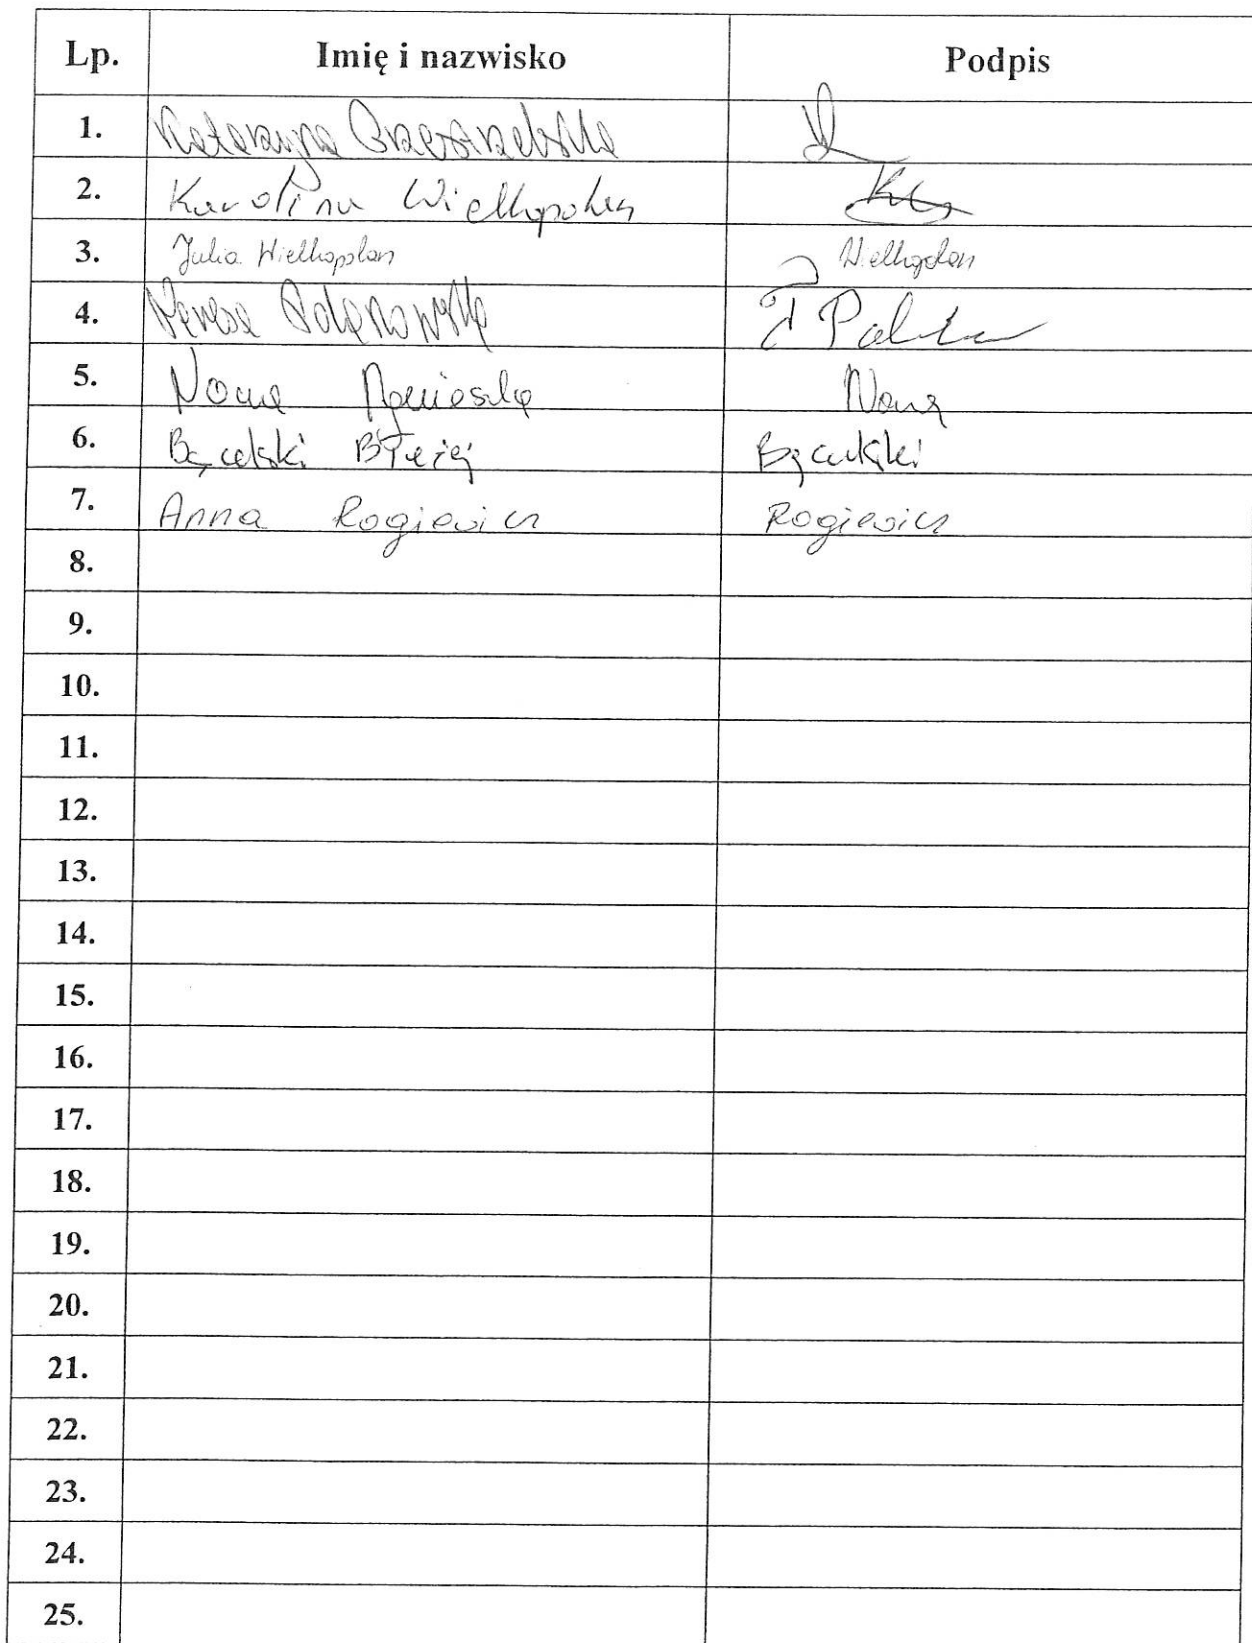 Lp. Imię i nazwisko Podpis
1. Katarzyna
2. Karolina Wielkopolan
3. Julia Wielkopolan Wielkopolan
4. Teresa Polanowska
5. Nowa Agnieszka Nowa
6. Bącelski Błażej Bącelski
7. Anna Rogiewicz Rogiewicz
8.
9.
10.
11.
12.
13.
14.
15.
16.
17.
18.
19.
20.
21.
22.
23.
24.
25.